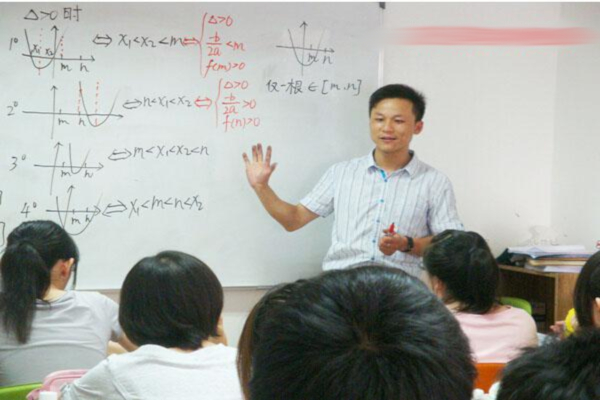 △>0 时
1° x₁ x₂ m n ⇔ x₁<x₂<m ⇔ {△>0
-b/2a<m
f(m)>0
仅一根∈[m,n]
2° m n ⇔ n<x₁<x₂ ⇔ {△>0
-b/2a>0
f(n)>0
3° m n ⇔ m<x₁<x₂<n
4° m n ⇔ x₁<m<n<x₂